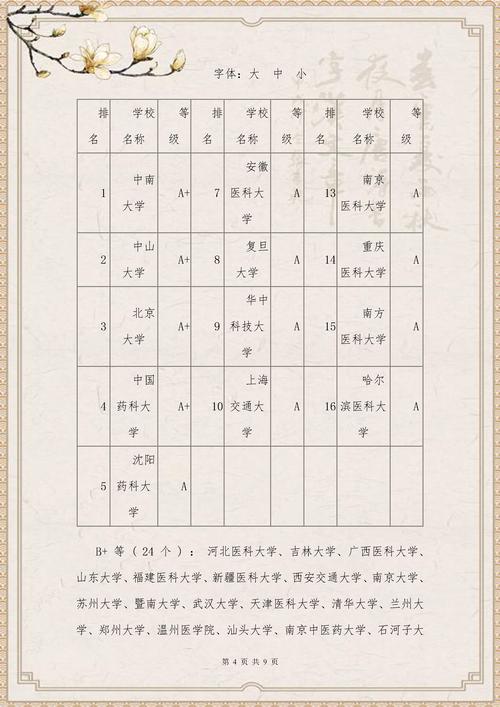 字体：大 中 小
排名 学校名称 等级 排名 学校名称 等级 排名 学校名称 等级
1 中南大学 A+ 7 安徽医科大学 A 13 南京医科大学 A
2 中山大学 A+ 8 复旦大学 A 14 重庆医科大学 A
3 北京大学 A+ 9 华中科技大学 A 15 南方医科大学 A
4 中国药科大学 A+ 10 上海交通大学 A 16 哈尔滨医科大学 A
5 沈阳药科大学 A
B+ 等 ( 24 个 ) ： 河北医科大学、吉林大学、广西医科大学、
山东大学、福建医科大学、新疆医科大学、西安交通大学、南京大学、
苏州大学、暨南大学、武汉大学、天津医科大学、清华大学、兰州大
学、郑州大学、温州医学院、汕头大学、南京中医药大学、石河子大
第 4 页 共 9 页